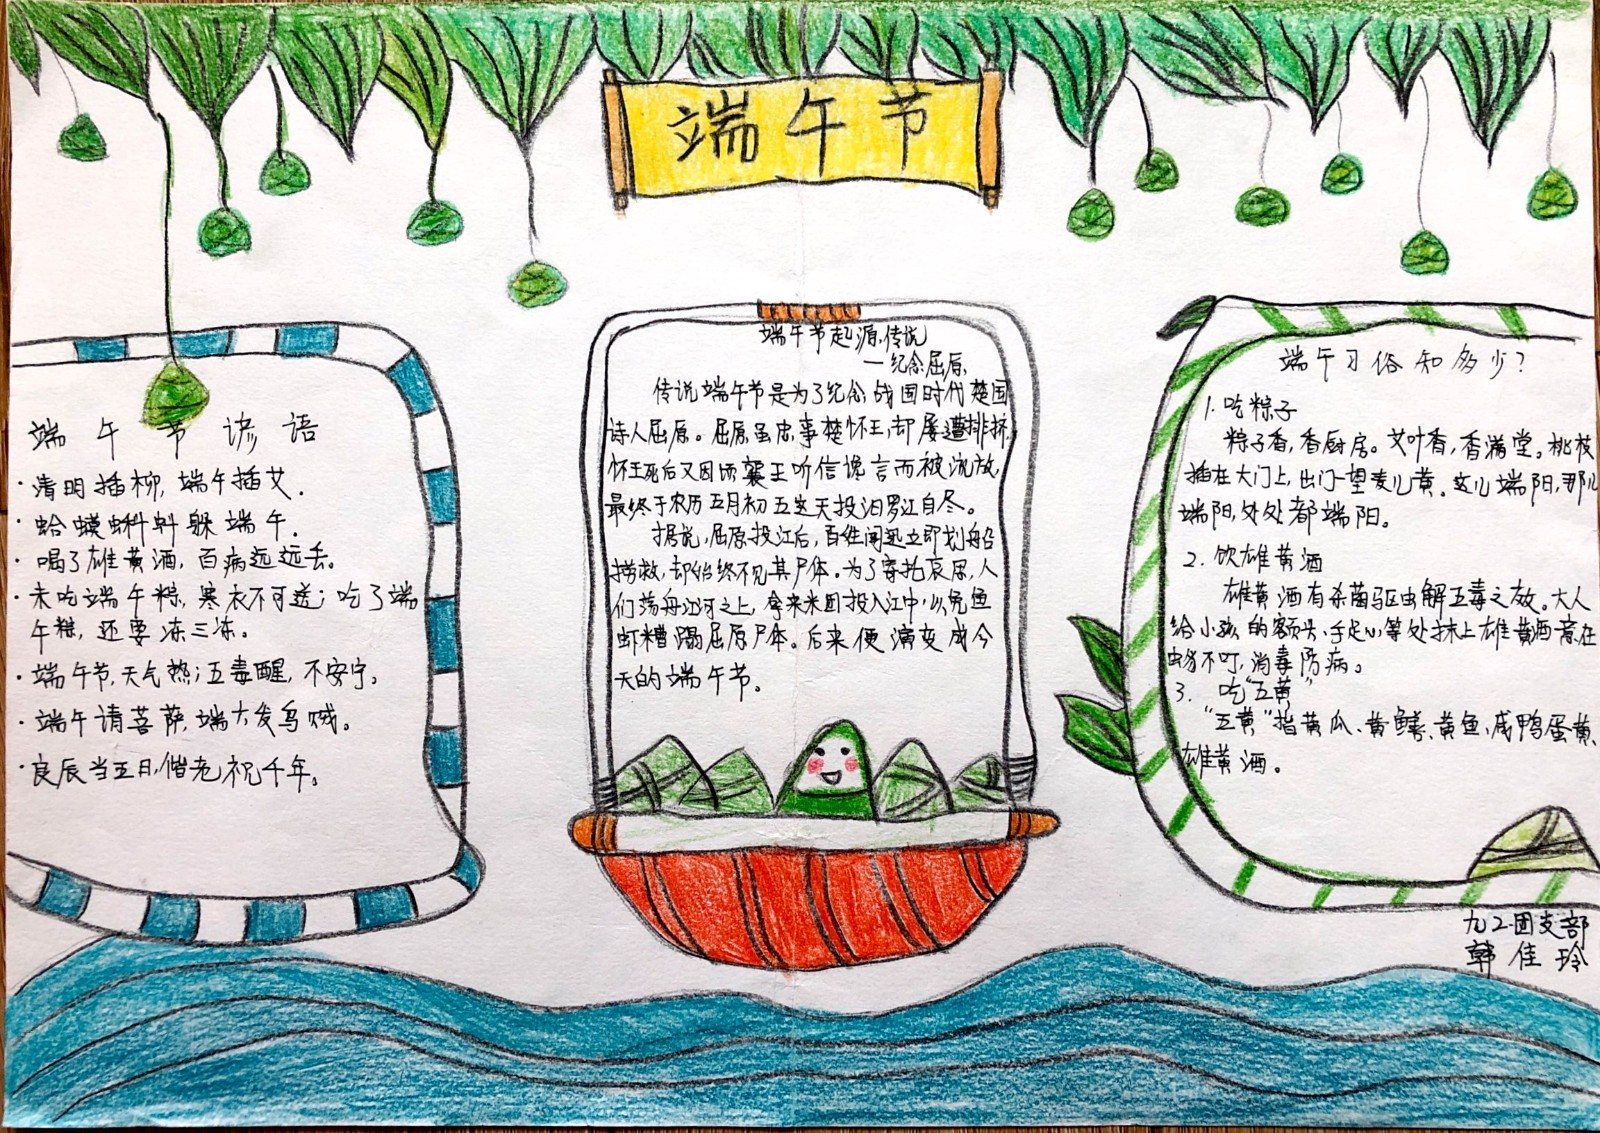 端午节
端午节谚语
·清明插柳,端午插艾.
·蛤蟆蝌蚪躲端午.
·喝了雄黄酒,百病远远丢。
·未吃端午粽,寒衣不可送;吃了端
午粽,还要冻三冻。
·端午节,天气热;五毒醒,不安宁。
·端午请菩萨,端六发乌贼。
·良辰当五日,偕老祝千年。
端午节起源传说
—纪念屈原
传说端午节是为了纪念战国时代楚国
诗人屈原。屈原虽忠事楚怀王,却屡遭排挤,
怀王死后又因顷襄王听信谗言而被流放,
最终于农历五月初五这天投汨罗江自尽。
据说,屈原投江后,百姓闻迅立即划船
捞救,却始终不见其尸体。为了寄托哀思,人
们荡舟江河之上,拿来米团投入江中,以免鱼
虾糟蹋屈原尸体。后来便演变成今
天的端午节。
端午习俗知多少?
1.吃粽子
粽子香,香厨房。艾叶香,香满堂。桃枝
插在大门上,出门一望麦儿黄。这儿端阳,那儿
端阳,处处都端阳。
2.饮雄黄酒
雄黄酒有杀菌驱虫解五毒之效。大人
给小孩的额头、手足心等处抹上雄黄酒,意在
虫豸不叮,消毒防病。
3.吃“五黄”
“五黄”指黄瓜、黄鳝、黄鱼、咸鸭蛋黄、
雄黄酒。
九2团支部
韩佳玲